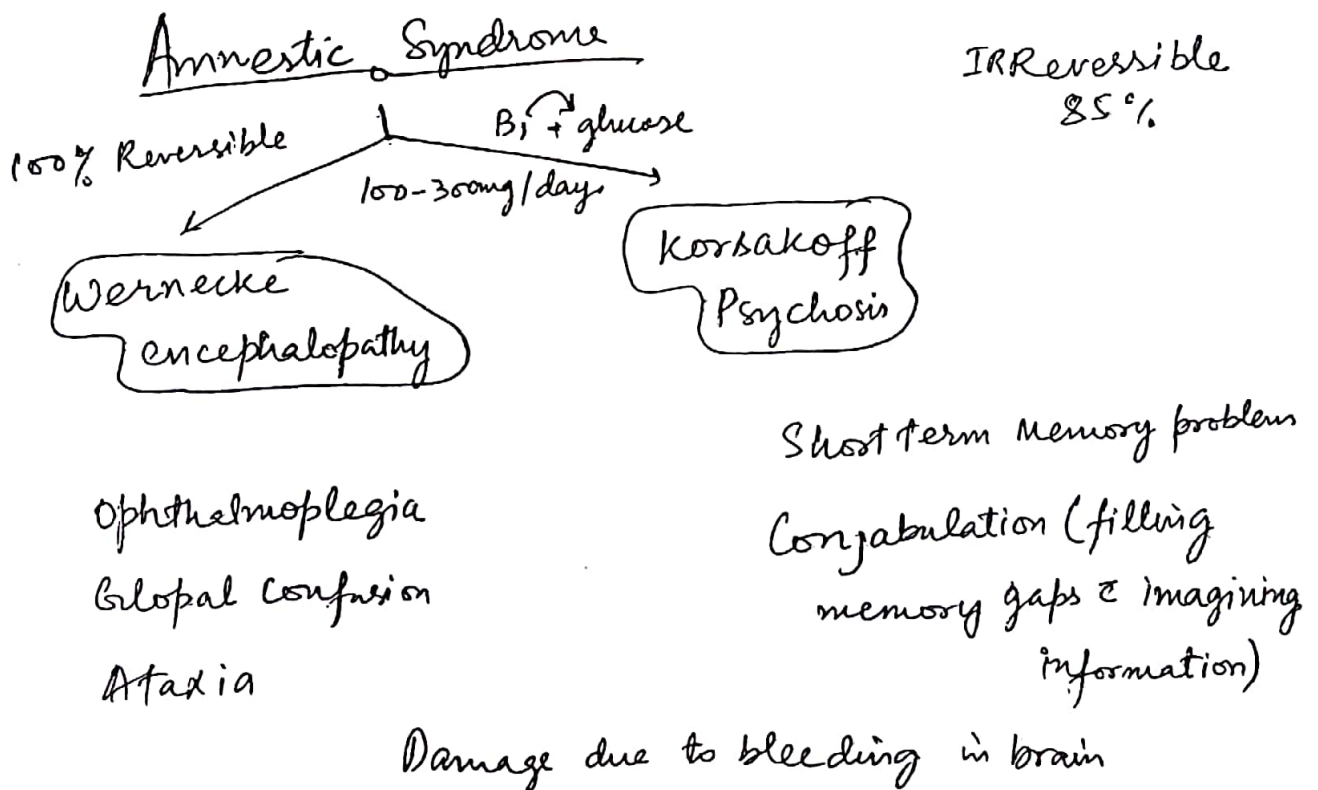 Amnestic Syndrome
IRReversible
85%
100% Reversible
B₁ + glucose
100-300mg/day.
Wernecke
encephalopathy
Korsakoff
Psychosis
Short term Memory problem
Ophthalmoplegia
Conjabulation (filling
Glopal Confusion
memory gaps c̄ imagining
information)
Ataxia
Damage due to bleeding in brain